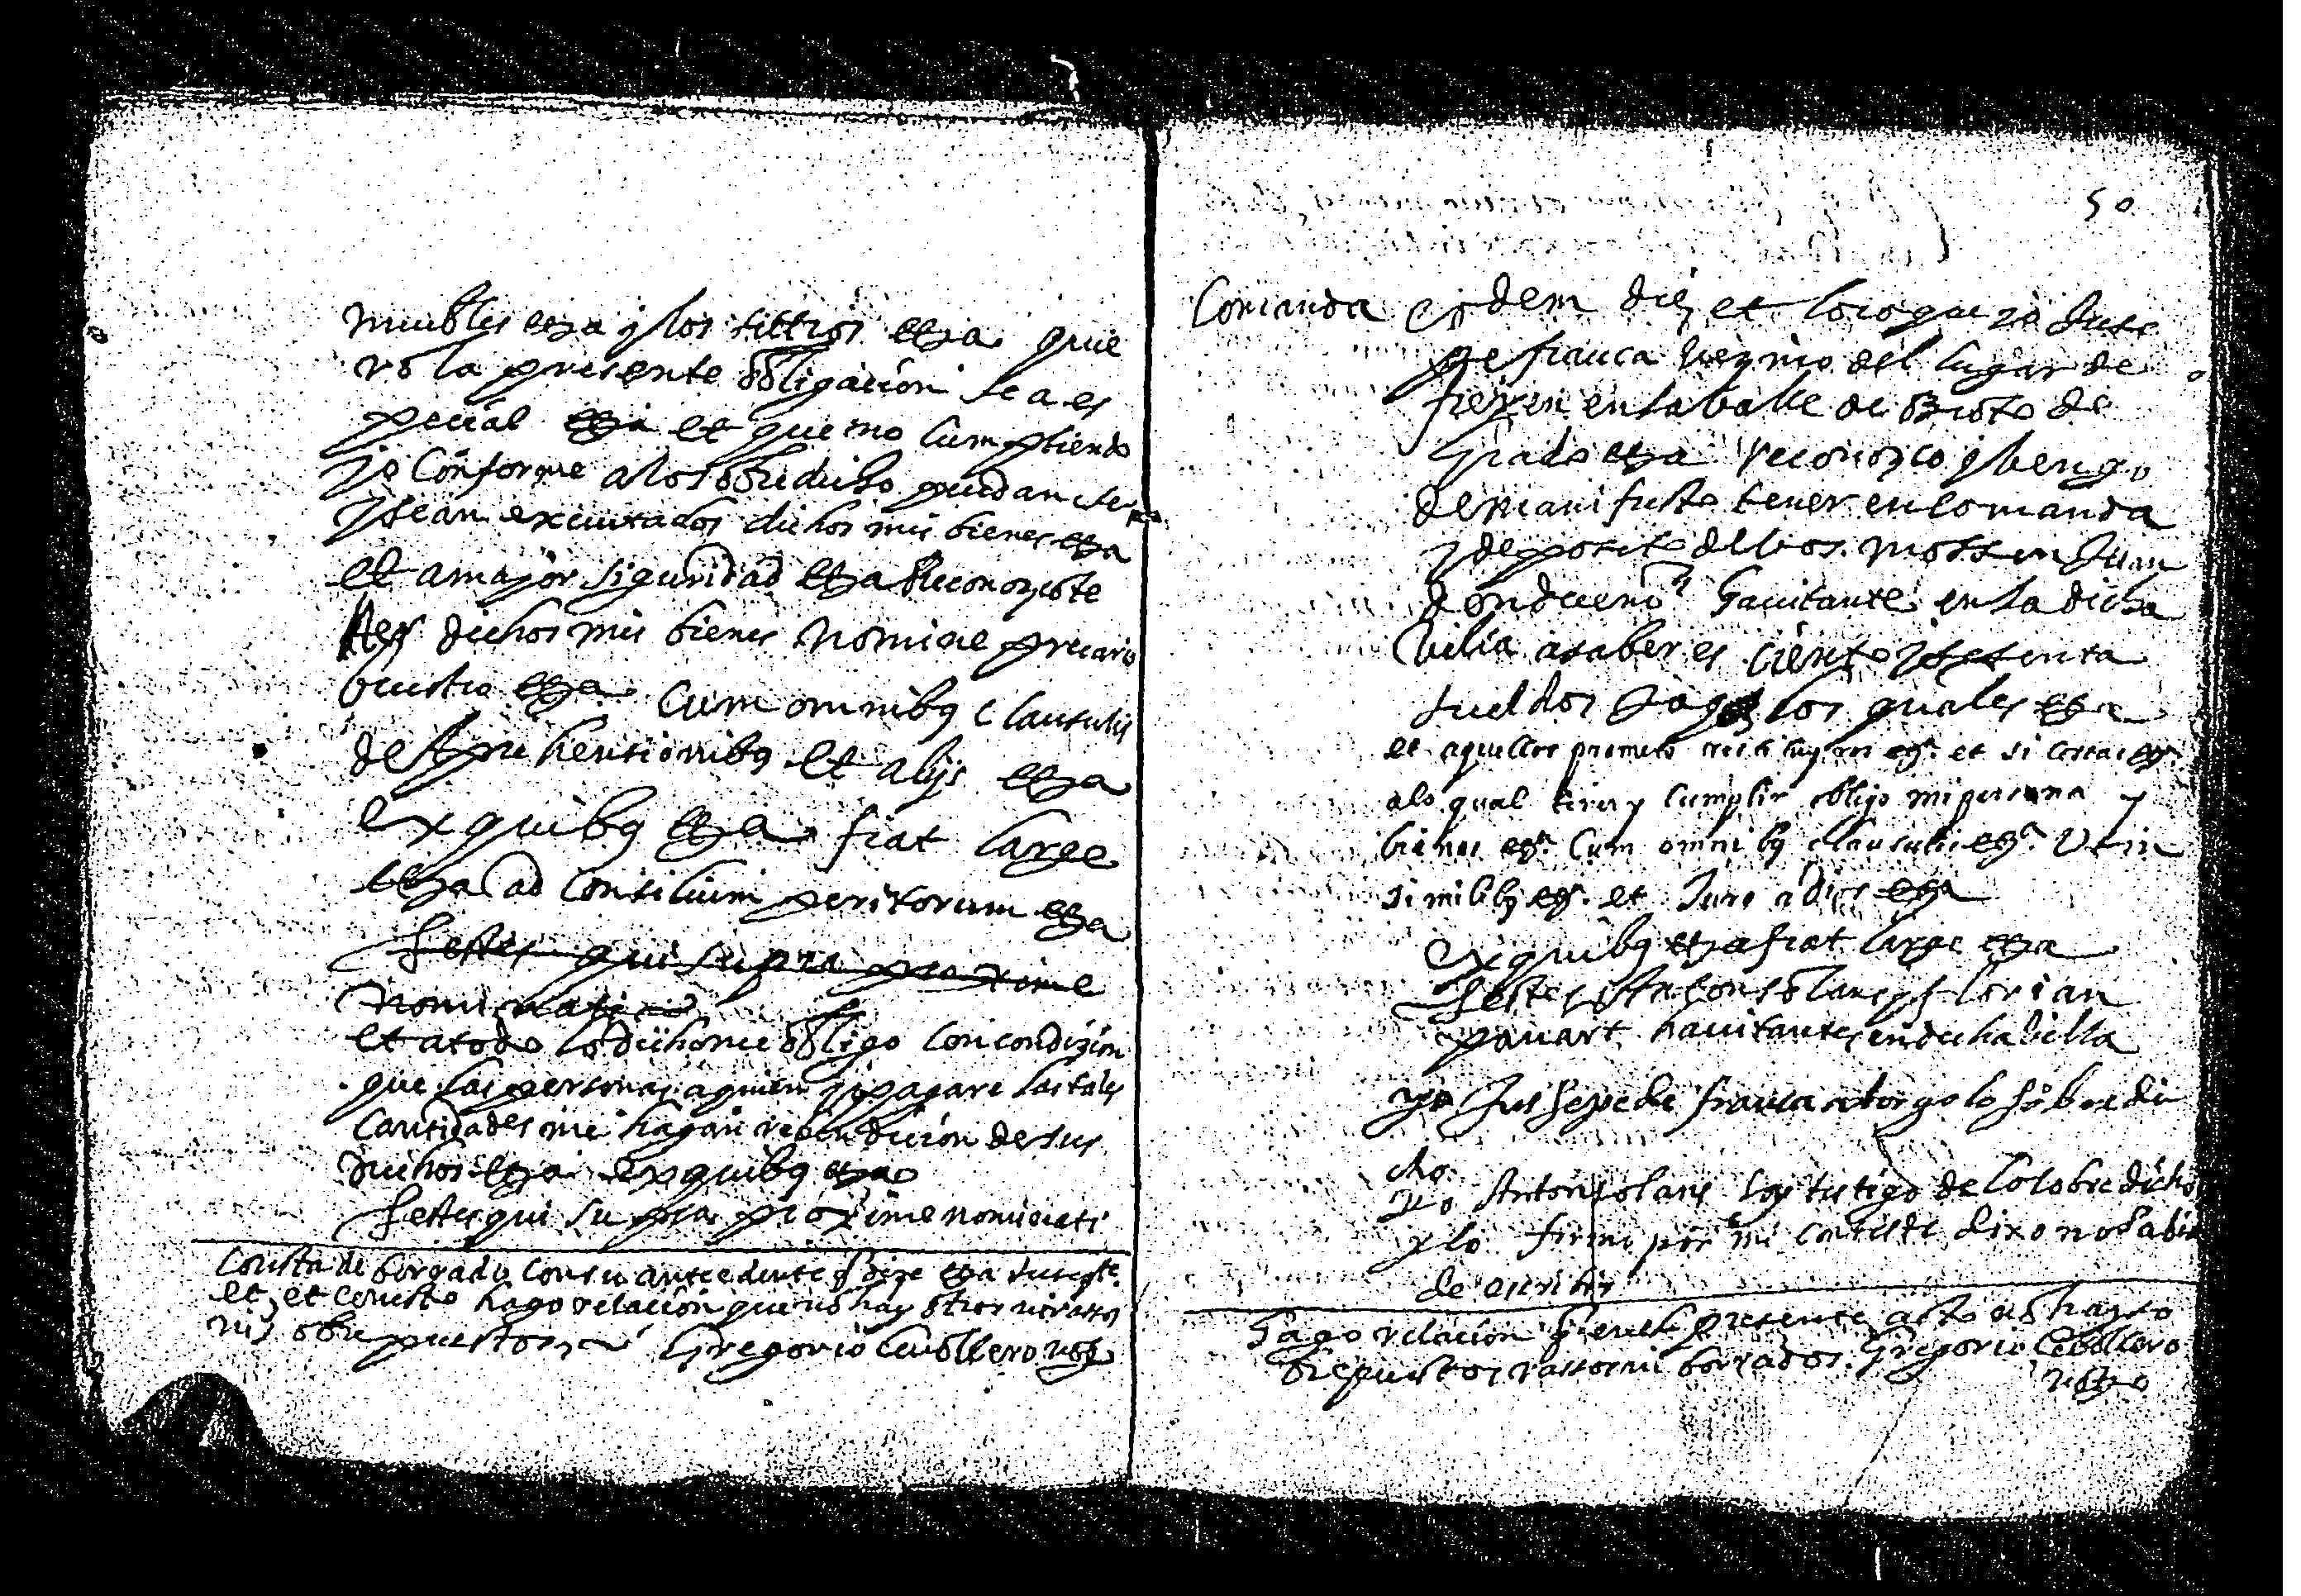 muebles etza y los sittios etza quie
ro la presente obligacion sea es
pecial etza et que no cumpliendo
yo conforme a lo sobredicho puedan ser
y sean executados dichos mis bienes etza
et a mayor siguridad etza Reconozco te
ner dichos mis bienes nomine precario
buestro etza cum omnibus clausulis
de apprehensionibus et alijs etza
ex quibus etza fiat large
etza ad consilium peritorum etza
testes qui supra proxime
nominati
et a todo lo dicho me obligo con condizion
que las personas a quien yo pagare las tales
cantidades me hagan vendicion de sus
drechos etza ex quibus etza
testes qui supra proxime nominati
Consta de borrado con su antecedente
et, et consto hago relacion que no hay otros ni rasos
ni sobrepuestos Gregorio Cebollero notº
50
Comanda eisdem die et loco que yo Juse
pe franca vezino del lugar de
fiscen en la balle de Broto de
Grado etza reconozco y bengo
de manifiesto tener en comanda
y deposito de bos mossen Juan
dondueno havitante en la dicha
villa a saber es ciento y setenta
sueldos Jaqs los quales etza
et aquellos prometo restituyr os etzª. et si costas etzª.
a lo qual tener y cumplir obligo mi persona y
bienes etzª. Cum omnibus clausulis etzª. Ut in
similibus etzª. et Juro a dios etza
ex quibus etza fiat large etza
testes Anton solans y florian
panart havitantes en dicha billa
yo Jussepe de franca atorgo lo sobredi
cho
yo Anton solans soy testigo de lo sobredicho
y lo firme por mi conteste dixo no sabia
de escribir
hago relacion que en el presente acto no hay so
brepuestos rasos ni borrados. Gregorio Cebollero
notrº